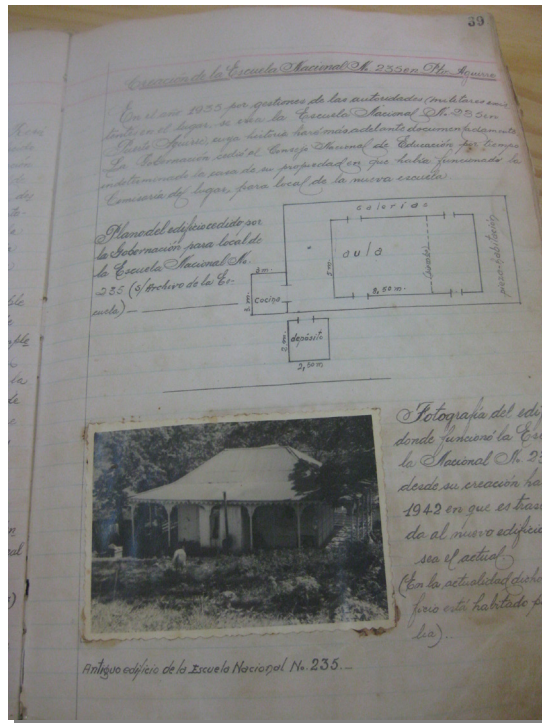 39
Creación de la Escuela Nacional N. 235 en Pto. Aguirre
En el año 1935 por gestiones de las autoridades militares
en el lugar, se crea la Escuela Nacional N. 235 en
Puerto Aguirre, cuya historia haré más adelante documentadamente
La Gobernación cedió al Consejo Nacional de Educación por tiempo
indeterminado la casa de su propiedad en que había funcionado la
Comisaría del lugar, para local de la nueva escuela.
Plano del edificio cedido por
la Gobernación para local de
la Escuela Nacional N.
235 (s/ Archivo de la Es-
cuela)
galerías
aula
5 m.
8,50 m.
cocina
3 m.
depósito
2 m.
2,50 m
Fotografía del edi
donde funcionó la Es
la Nacional N. 23
desde su creación ha
1942 en que es tras
da al nuevo edificio
sea el actual
(En la actualidad dicho
ficio está habitado p
lia).
Antiguo edificio de la Escuela Nacional No. 235.